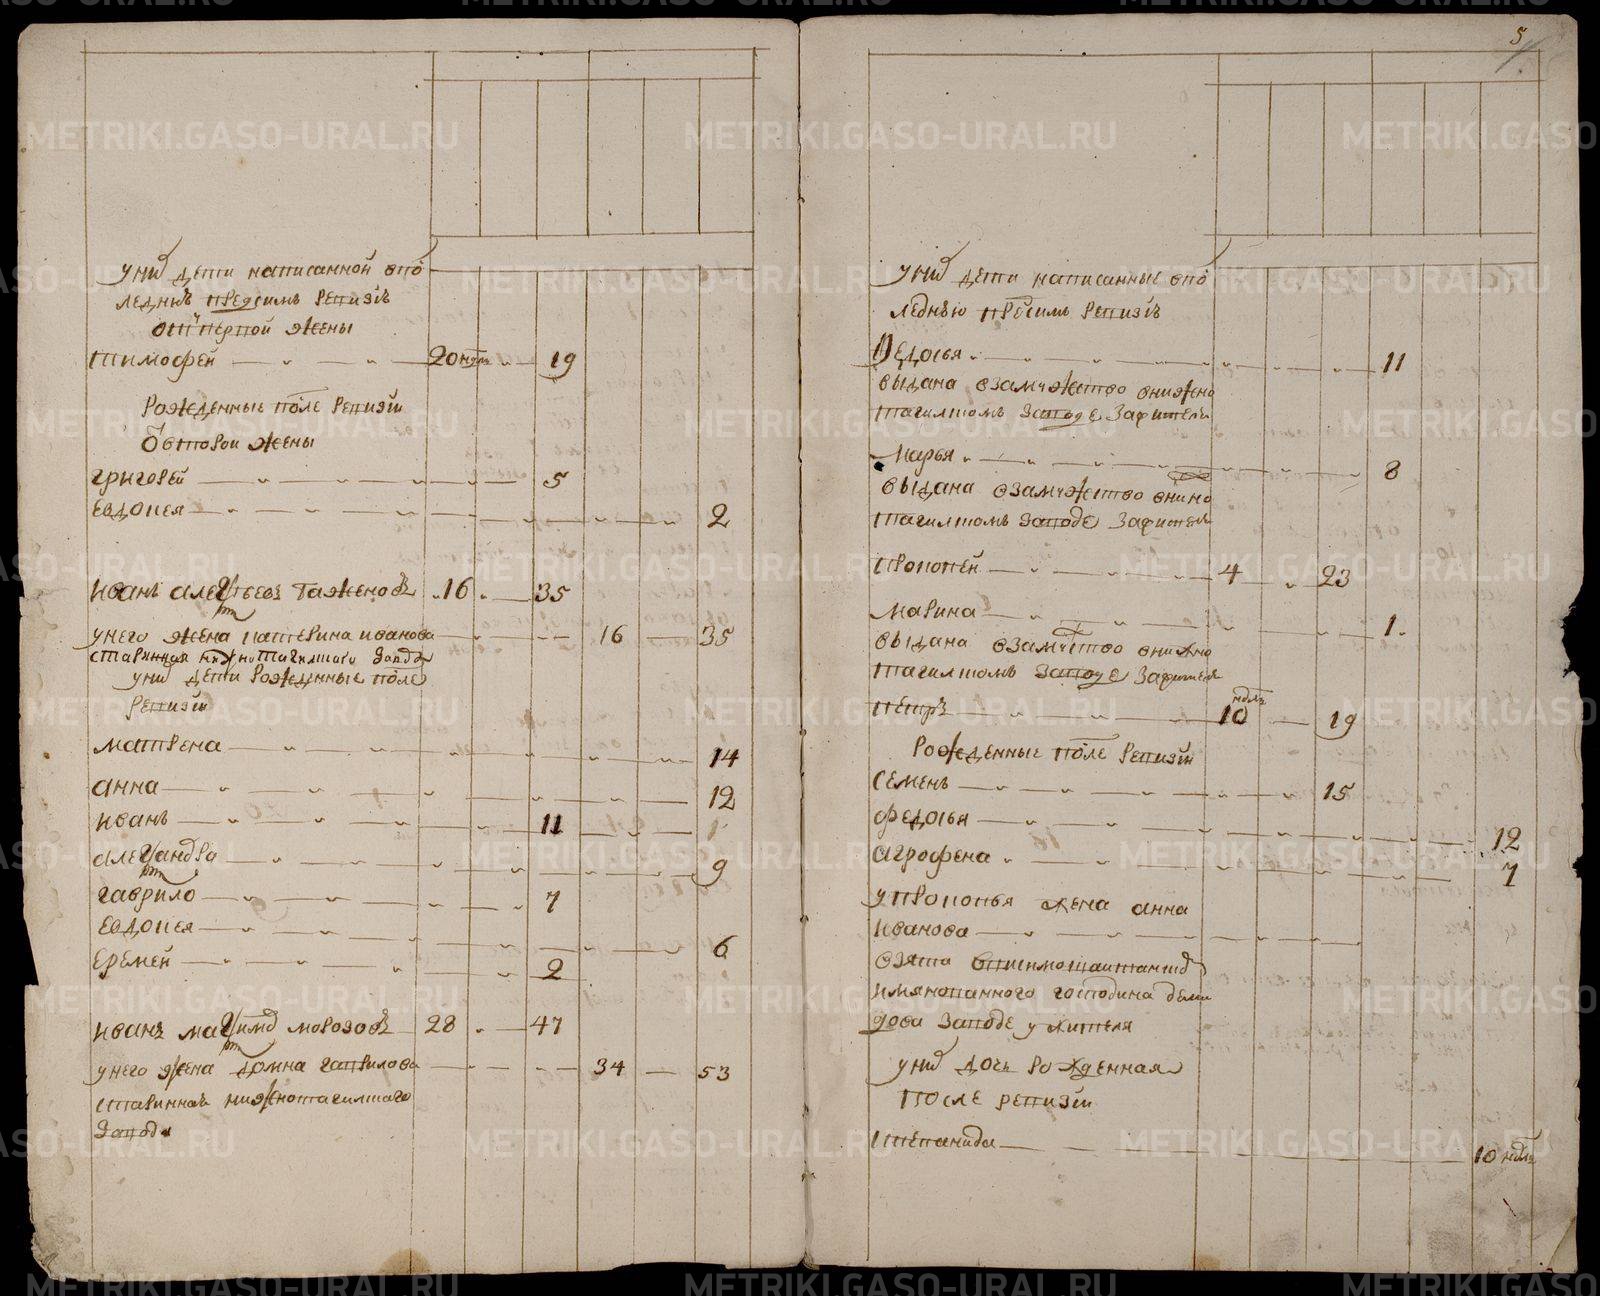 у них дети написанной впо
следнѣй пред сим ревизіи
от первой жены
тимофей 20 недел 19
рожденные после ревизіи
от второй жены
григорей 5
евдокея 2
иванъ алексѣевъ 16 35
у него жена катерина иванова 16 35
старинная нижнотагилского завода
у них дети рожденные после
ревизіи
матрена 14
анна 12
иванъ 11
александра 9
гаврило 7
евдокея 6
еремей 2
иванъ максимов морозовъ 28 47
у него жена домна гаврилова 34 53
старинная нижнотагилского
завода
5
у них дети написанные впо
следнѣю пред сим ревизіи
Федосья 11
выдана взамужество внижно
тагилском заводе за жителя
марья 8
выдана взамужество внижно
тагилском заводе за жителя
прокопей 4 23
марина 1
выдана взамужество внижно
тагилском заводе за жителя
петръ 10 недел 19
рожденные после ревизіи
семенъ 15
федосья 12
агрофена 7
у прокопья жена анна
иванова
взята
имянованного господина деми
дова заводе у жителя
у них дочь рожденная
после ревизіи
степанида 10 недел
METRIKI.GASO-URAL.RU